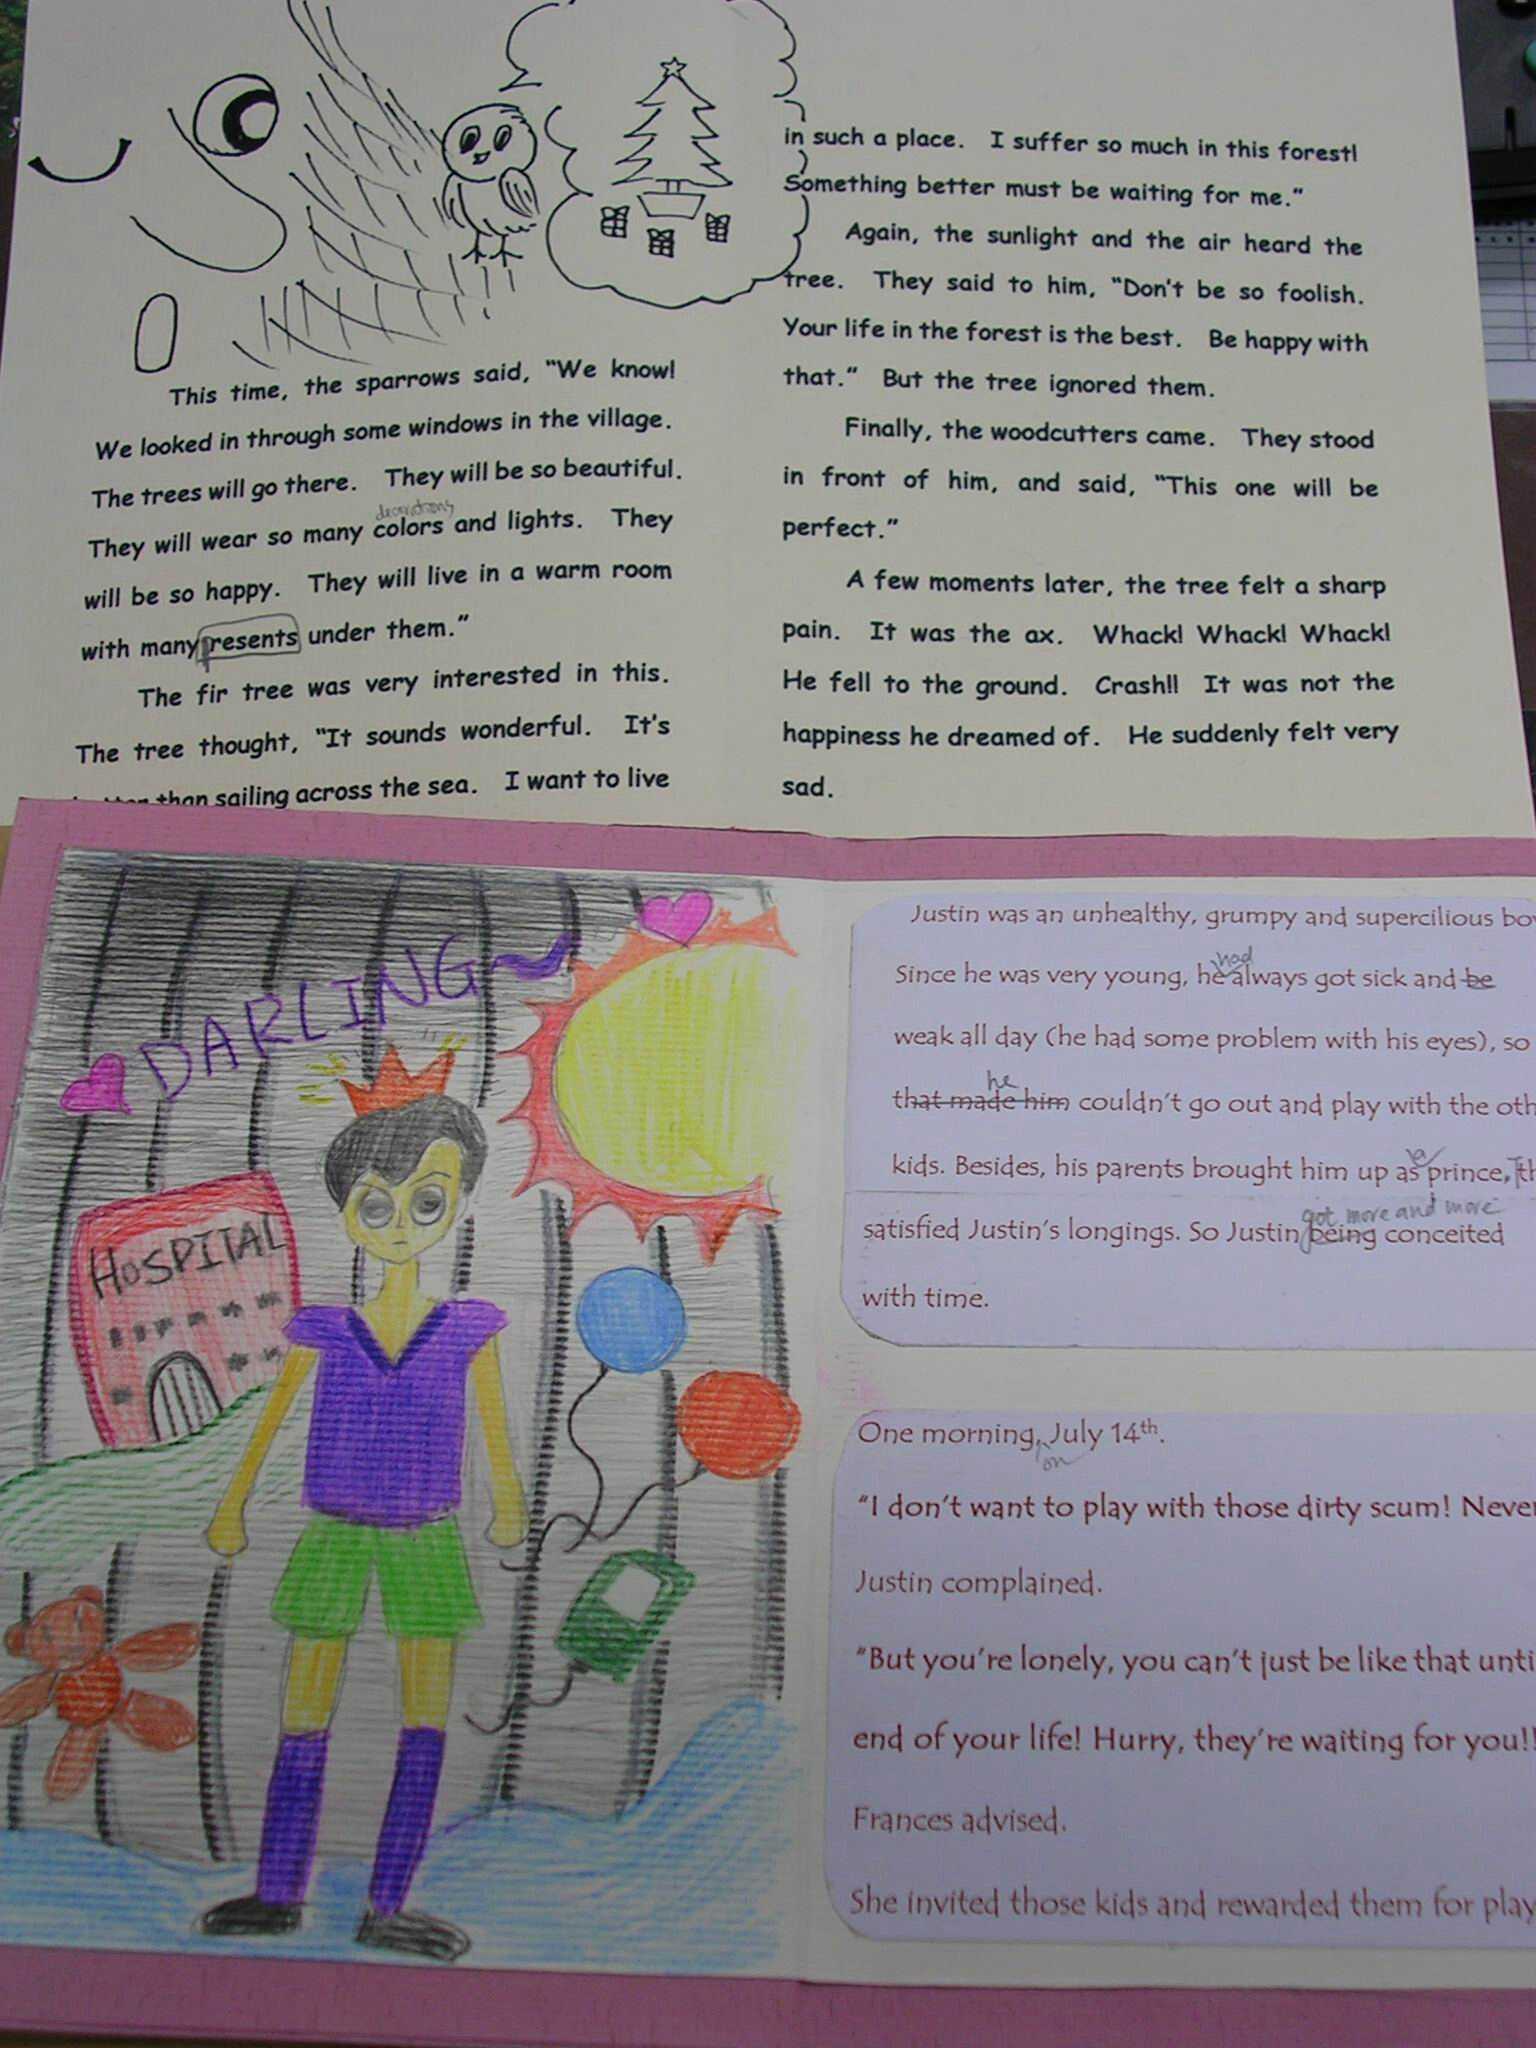 This time, the sparrows said, “We know!
We looked in through some windows in the village.
The trees will go there. They will be so beautiful.
decorations
They will wear so many colors and lights. They
will be so happy. They will live in a warm room
with many presents under them.”
The fir tree was very interested in this.
The tree thought, “It sounds wonderful. It's
than sailing across the sea. I want to live
in such a place. I suffer so much in this forest!
Something better must be waiting for me.”
Again, the sunlight and the air heard the
tree. They said to him, “Don't be so foolish.
Your life in the forest is the best. Be happy with
that.” But the tree ignored them.
Finally, the woodcutters came. They stood
in front of him, and said, “This one will be
perfect.”
A few moments later, the tree felt a sharp
pain. It was the ax. Whack! Whack! Whack!
He fell to the ground. Crash!! It was not the
happiness he dreamed of. He suddenly felt very
sad.
DARLING~
HOSPITAL
Justin was an unhealthy, grumpy and supercilious bo
had
Since he was very young, he always got sick and be
weak all day (he had some problem with his eyes), so
he
that made him couldn't go out and play with the oth
kids. Besides, his parents brought him up as a prince. Th
got more and more
satisfied Justin's longings. So Justin being conceited
with time.
One morning, July 14th.
on
“I don't want to play with those dirty scum! Never
Justin complained.
“But you're lonely, you can't just be like that unti
end of your life! Hurry, they're waiting for you!!
Frances advised.
She invited those kids and rewarded them for play